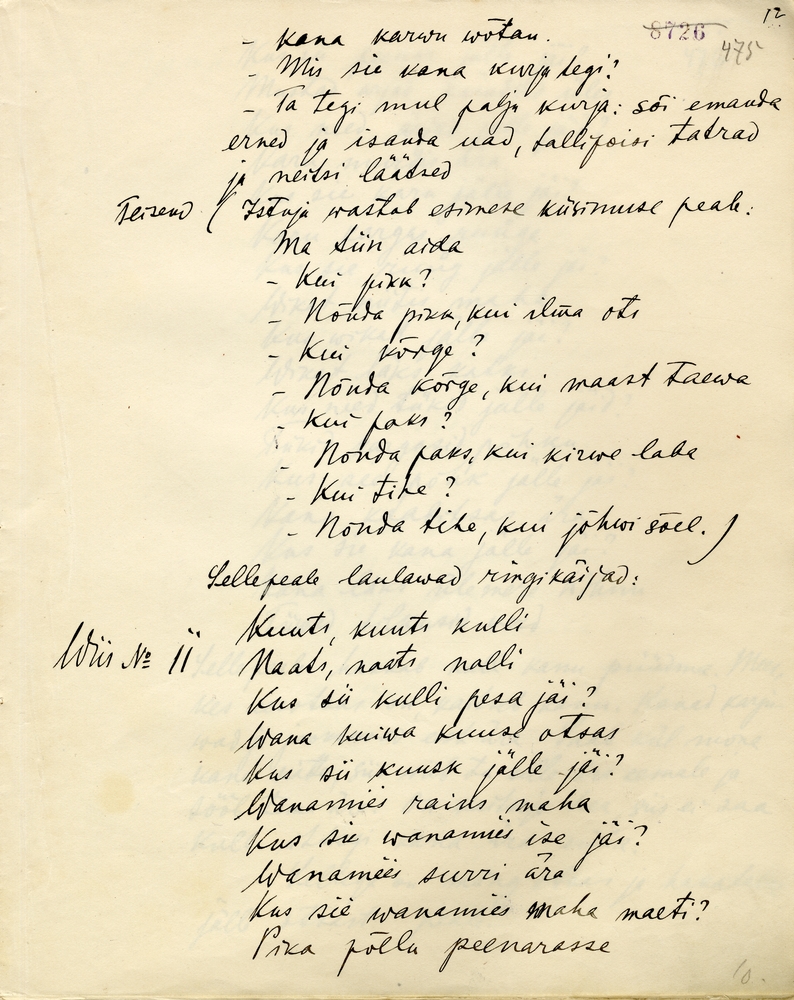 12
8726
475
- Kana karwu wõtan.
- Mis sie kana kurja tegi?
- Ta tegi mul palju kurja: sõi emanda
erned ja isanda uad, tallipoisi tatrad
ja neitsi läätsed
Teisend (Istuja wastab esimese küsimuse peale:
Ma tiin aida
- Kui pikk?
- Nõnda pikk, kui ilma ots
- Kui kõrge?
- Nõnda kõrge, kui maast taewa
- Kui paks?
- Nõnda paks, kui kirwe laba
- Kui tihe?
- Nõnda tihe, kui jõhwi sõel.)
Sellepeale laulawad ringikäijad:
Kuuts, kuuts kulli
Wiis № 11 Naats, naats nalli
Kus sii kulli pesa jäi?
Wana kuiwa kuuse otsas
Kus sii kuusk jälle jäi?
Wanamiis raius maha
Kus sie wanamiis ise jäi?
Wanamiis surri ära
Kus sie wanamiis maha maeti?
Pika põllu peenarasse
10.